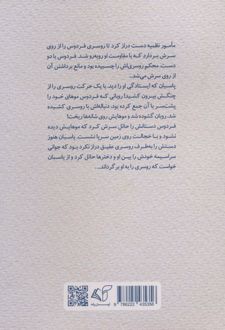 مأمور نظمیه دست دراز کرد تا روسری فردوس را از روی
سرش بردارد که با مقاومت او روبه‌رو شد. فردوس با دو
دست محکم روسری‌اش را چسبیده بود و مانع برداشتن آن
از روی سرش می‌شد.
پاسبان که ایستادگی او را دید، با یک حرکت روسری را از
چنگش بیرون کشید! روبانی که فردوس موهای خود را
پشت‌سر با آن جمع کرده بود، دنبالۀ‌اش با روسری کشیده
شد. روبان گشوده شد و موهایش روی شانه‌ها ریخت!
فردوس دستانش را حائل سرش کرد که موهایش دیده
نشود و با خجالت روی زمین سرپا نشست. پاسبان هنوز
دستش را به‌طرف روسری عقیق دراز نکرد بود که جوانی
سراسیمه خودش را بین او و دخترها حائل کرد و از پاسبان
خواست که روسری را به او برگرداند...
9 786222 435386